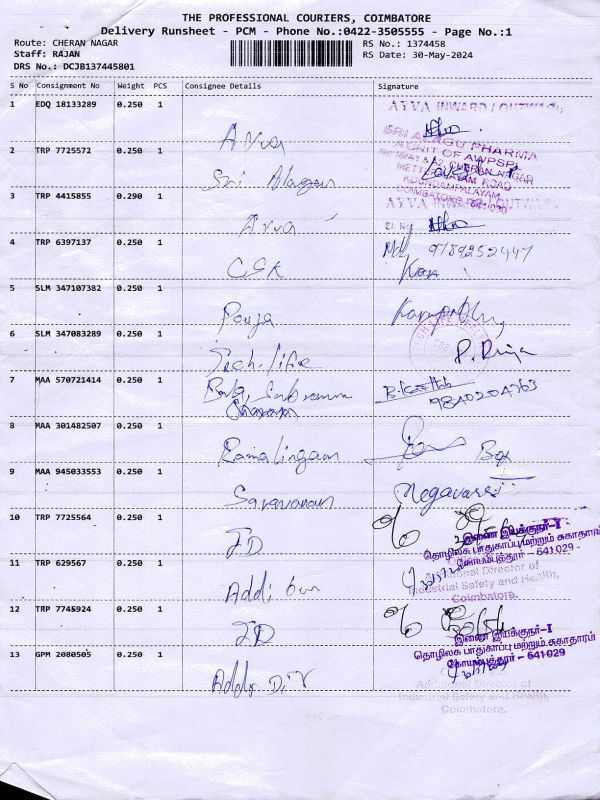 THE PROFESSIONAL COURIERS, COIMBATORE
Delivery Runsheet - PCM - Phone No.:0422-3505555 - Page No.:1
Route: CHERAN NAGAR
RS No.: 1374458
Staff: RAJAN
RS Date: 30-May-2024
DRS No.: DCJB137445801
S No Consignment No Weight PCS Consignee Details Signature
1 EDQ 18133289 0.250 1
AYVA INWARD / OUTWARD
Ayva
2 TRP 7725572 0.250 1
SRI ALAGU PHARMA
A UNIT OF AWPSPL
CHERAN NAGAR
METTUPALAYAM ROAD
KOUNDAMPALAYAM
COIMBATORE - 641030
Sri Alagu
3 TRP 4415855 0.290 1
AYVA INWARD / OUTWARD
Sl. No
Ayva
4 TRP 6397137 0.250 1
9789252447
CSK
5 SLM 347107382 0.250 1
Pooja
6 SLM 347083289 0.250 1
P. Divya
Tech. life
7 MAA 570721414 0.250 1
Bala Subramaniam
9840204763
8 MAA 301482507 0.250 1
Ramalingam
9 MAA 945033553 0.250 1
Saravanan
Megavarsi
10 TRP 7725564 0.250 1
JD
இணை இயக்குநர்-I
தொழிலக பாதுகாப்பு மற்றும் சுகாதாரம்
கோயம்புத்தூர் - 641029
11 TRP 629567 0.250 1
Additional Director of
Industrial Safety and Health,
Coimbatore.
12 TRP 7745924 0.250 1
JD
இணை இயக்குநர்-I
தொழிலக பாதுகாப்பு மற்றும் சுகாதாரம்
கோயம்புத்தூர் - 641029
13 GPM 2080505 0.250 1
Additional Director of
Industrial Safety and Health,
Coimbatore.